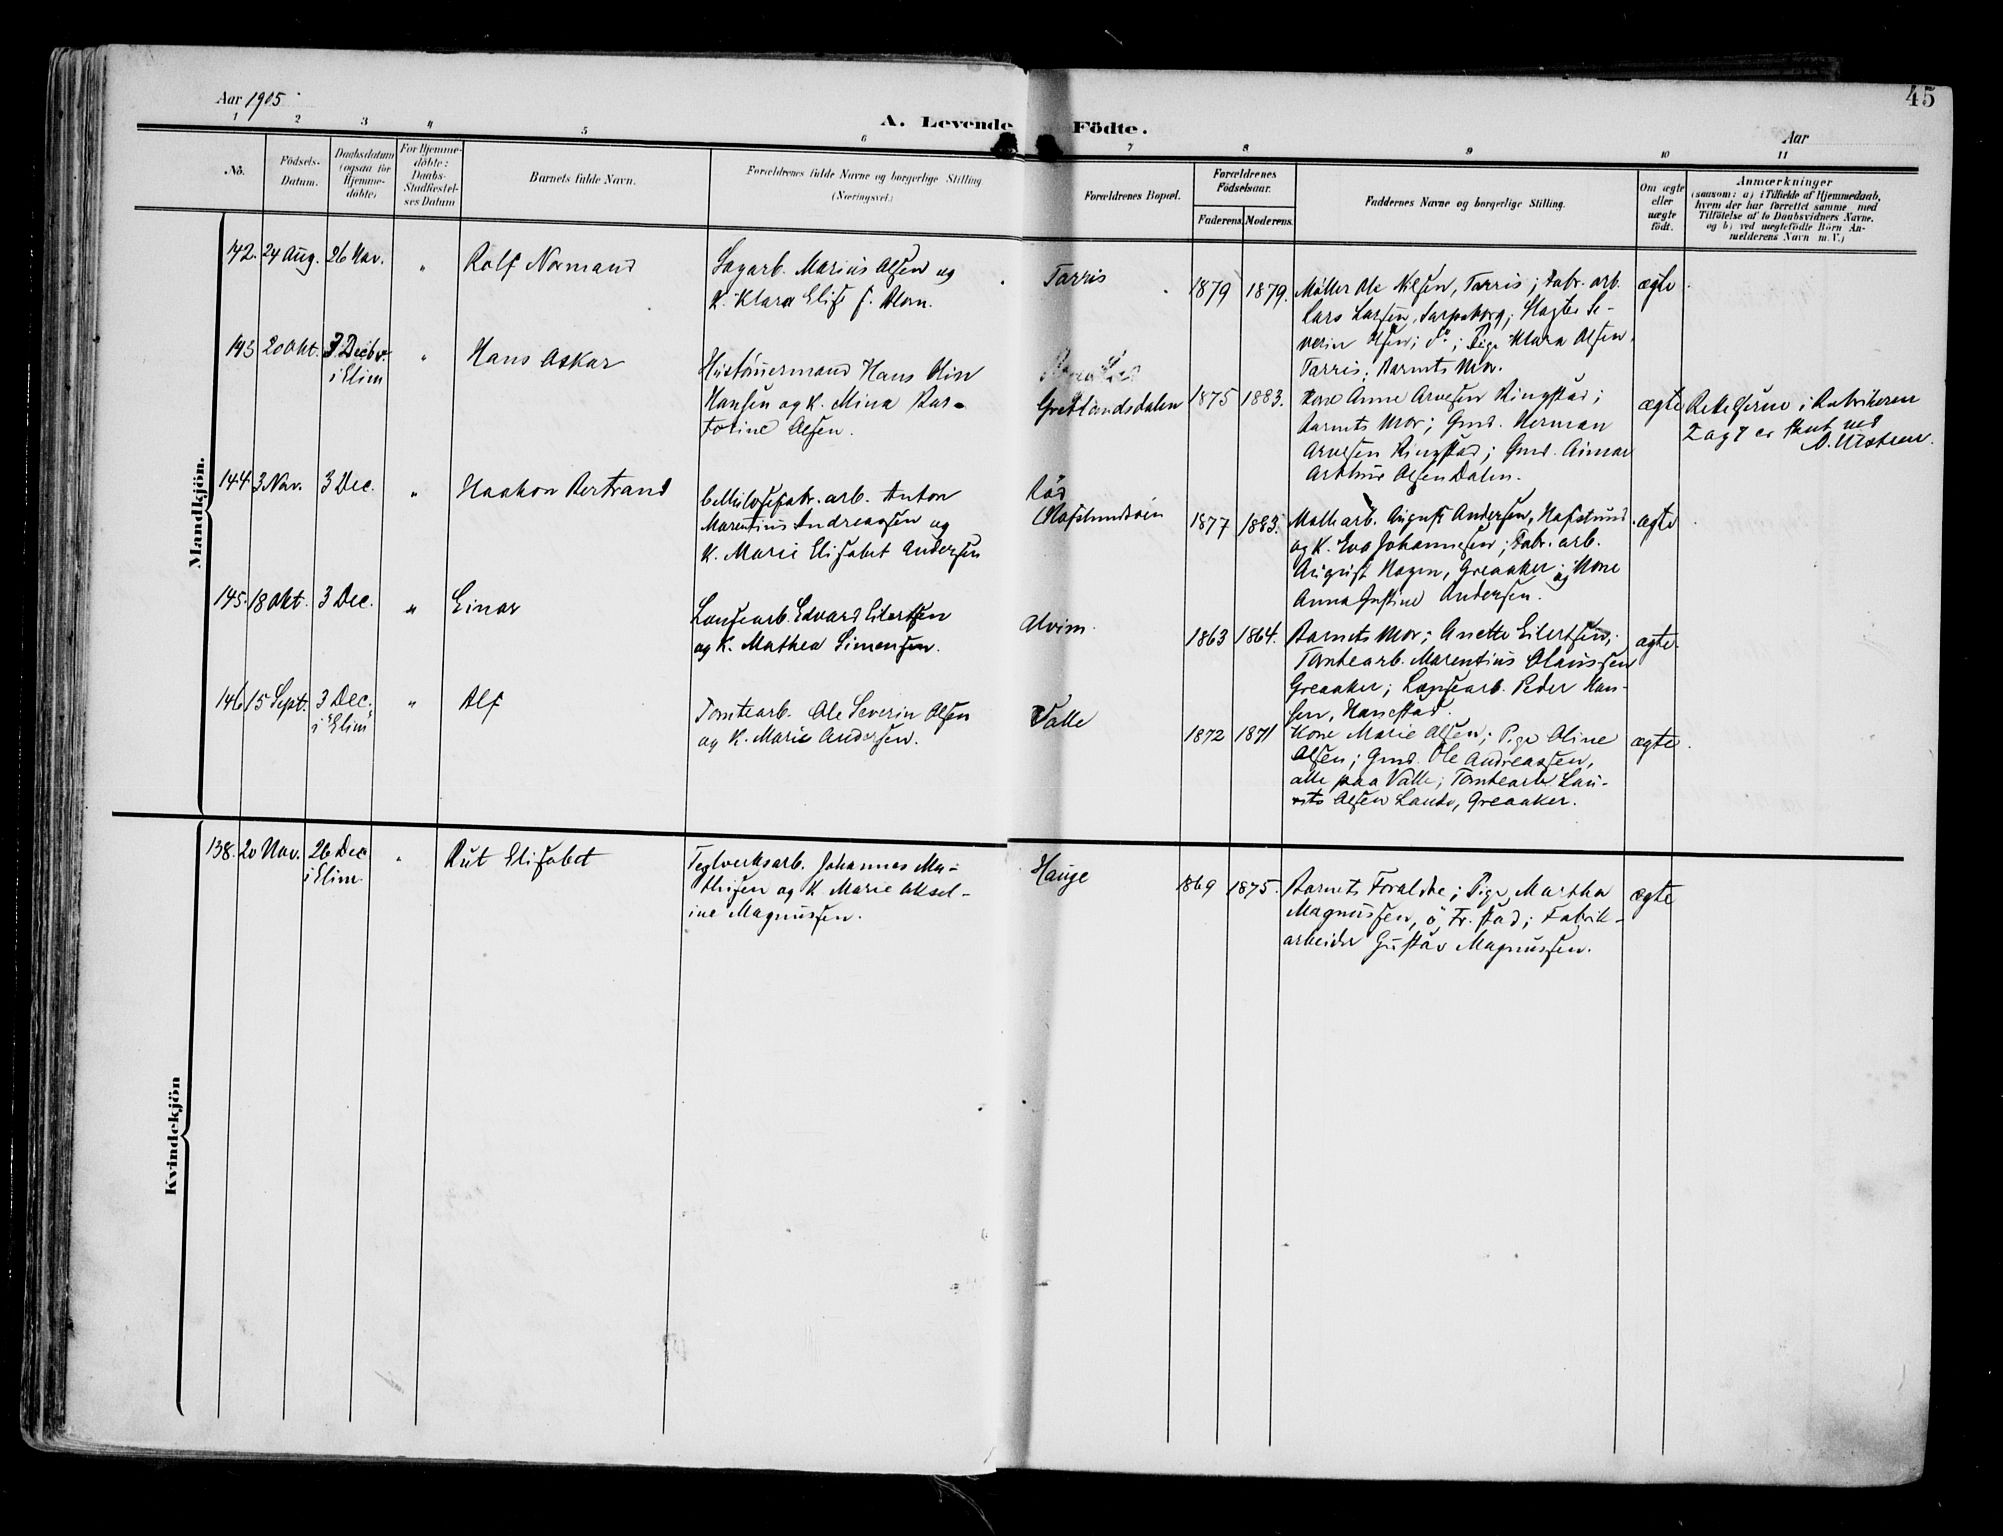 Aar 1905
45
A. Levende Födte.
Aar
1 2 3 4 5 6 7 8 9 10 11
No.
Födsels-
Datum.
Daabsdatum
(ogsaa for
Hjemme-
döbte)
For Hjemme-
döbte:
Daabs-
Stadfæstel-
ses Datum
Barnets fulde Navn.
Forældrenes fulde Navne og borgerlige Stilling
(Næringsvei.)
Forældrenes Bopæl.
Forældrenes
Födselsaar.
Faderens. Moderens.
Faddernes Navne og borgerlige Stilling.
Om ægte
eller
uægte
födt.
Anmærkninger
(saasom: a) i Tilfælde af Hjemmedaab,
hvem der har forrettet samme med
Tilföielse af to Daabsvidners Navne.
og b) ved uægtefödte Börn An-
melderens Navn m. V.)
Mandkjön.
142. 24 Aug. 26 Nov. " Rolf Normand
Sagarb. Marius Olsen og
K. Klara Elise f.
Torris
1879 1879.
Møller Ole Nilsen, Torris; Fabr. arb.
Lars Larsen, Sarpsborg; Slagter Se-
verin Olsen; Pige Klara Olsen,
Torris; Barnets Mor.
ægte
143 20 Okt. 3 Decbr.
i Elim
" Hans Oskar
Hustømermand Hans Olin
Hansen og K. Mina Bar-
Olsen.
Gretlandsdalen
1875 1883.
Kone Anne Arvesen Ringstad;
Barnets Mor; Gmd. Herman
Arvesen Ringstad; Gmd. Einar
Arthur Olsen Dalen.
ægte
Rettelserne i Rubrikeren
2 og 7 er
144 3 Nov. 3 Dec. " Haakon Bertrand
Cellulosefabr. arb. Anton
Marentius Andreassen og
K. Marie Elisabet Andersen
Rød
Hafslundsøen
1877 1883.
arb. August Andersen, Hafslund
og K. Eva Johannesen; Fabr. arb.
August Hagen, Greaaker; og Kone
Anna Gustine Andersen.
ægte
145. 18 Okt. 3 Dec. " Einar
Edvard Eilertsen
og K. Mathea Simensen.
Alvim.
1863 1864.
Barnets Mor; Anette Eilertsen;
Tomtearb. Marentius Olaussen
Greaaker; Peder Han-
sen, Hanestad.
ægte.
146 15 Sept. 3 Dec.
i "Elim"
" Alf
Tomtearb. Ole Severin Olsen
og K. Marie Andersen.
Valle
1872 1871
Kone Marie Olsen; Pige Oline
Olsen; Gmd. Ole Andreassen,
alle paa Valle; Tomtearb. Lau-
rits Olsen Lande, Greaaker.
ægte.
Kvindekjön
138. 20 Nov. 26 Dec
i Elim.
" Rut Elisabet
Teglverksarb. Johannes Ma-
thisen og K. Marie Aksel-
ine Magnussen.
Hauge
1869 1875.
Barnets Foraldre; Pige Martha
Magnussen, ö Fr. stad; Fabrik-
arbeider Gustav Magnussen.
ægte